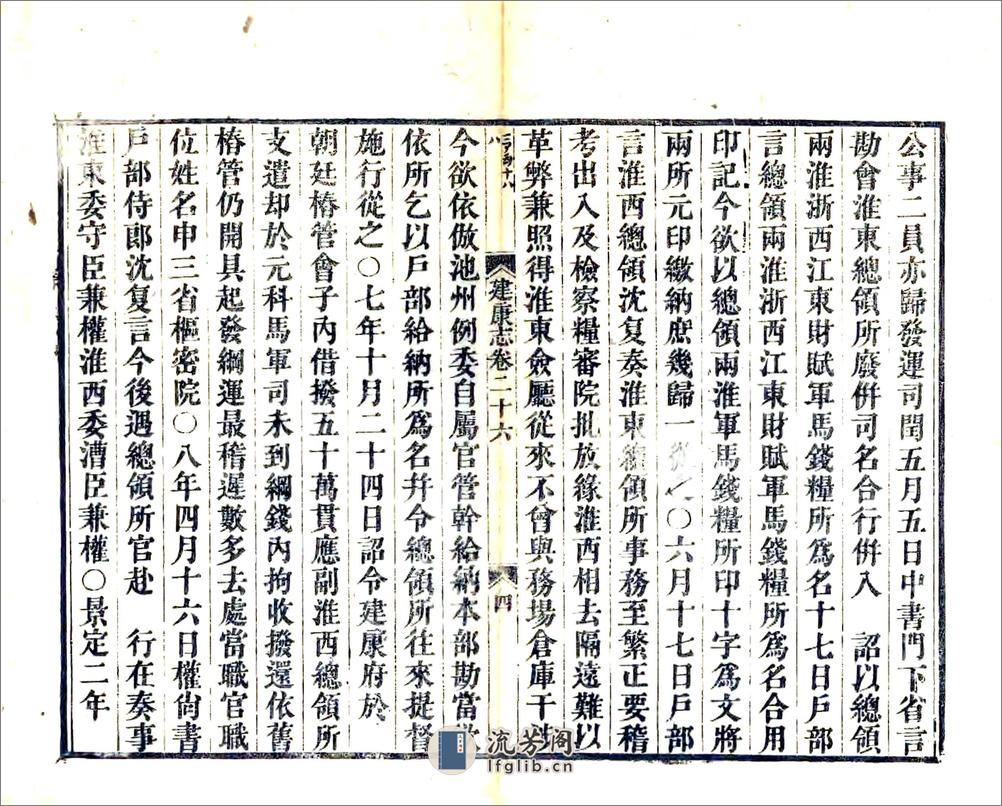 公事二員亦歸發運司閏五月五日中書門下省言
勘會淮東總領所廢併司名合行併入 詔以總領
兩淮浙西江東財賦軍馬錢糧所爲名十七日戶部
言總領兩淮浙西江東財賦軍馬錢糧所爲名合用
印記今欲以總領兩淮軍馬錢糧所印十字爲文將
兩所元印繳納庶幾歸一從之○六月十七日戶部
言淮西總領沈复奏淮東總領所事務至繁正要稽
考出入及檢察糧審院批放緣淮西相去隔遠難以
革弊兼照得淮東僉廳從來不曾與務場倉庫干
建康志卷二十六
四
今欲依倣池州例委自屬官管幹給納本部勘當
依所乞以戶部給納所爲名幷令總領所往來提督
施行從之○七年十月二十四日詔令建康府於
朝廷樁管會子內借撥五十萬貫應副淮西總領所
支遣却於元科馬軍司未到綱錢內拘收撥還依舊
樁管仍開具起發綱運最稽遲數多去處當職官職
位姓名申三省樞密院○八年四月十六日權尙書
戶部侍郎沈复言今後遇總領所官赴 行在奏事
淮東委守臣兼權淮西委漕臣兼權○景定二年
流芳阁
lfglib.cn